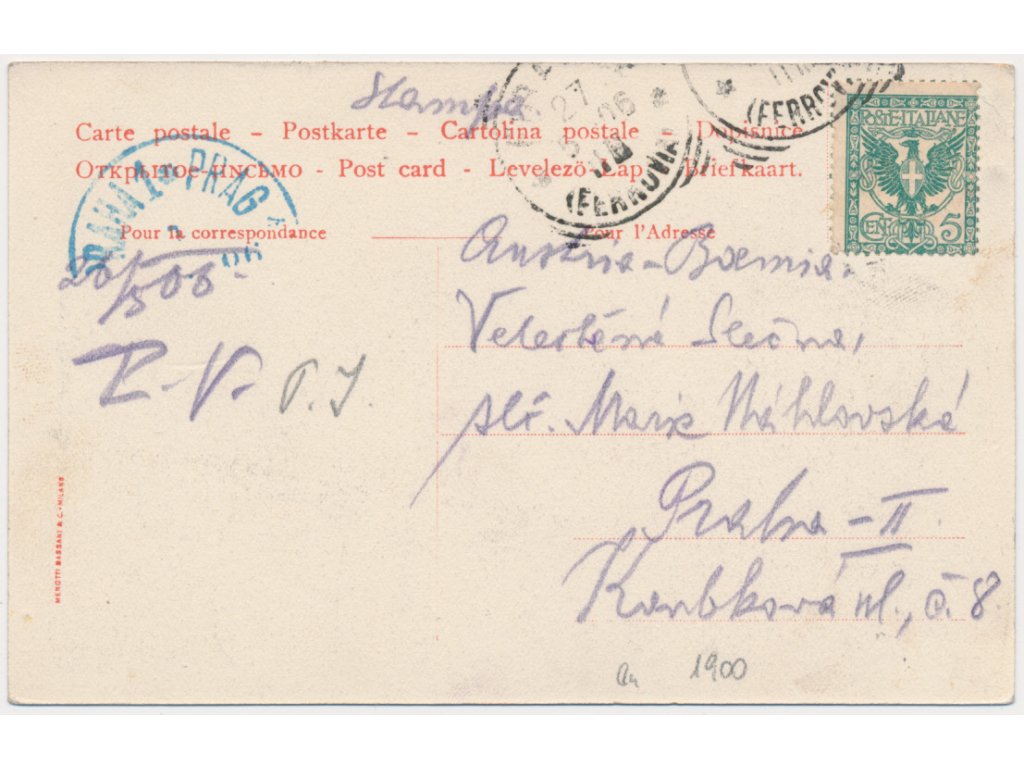 Stampa
Carte postale – Postkarte – Cartolina postale – Dopisnice
Открытое-письмо – Post card – Levelező-Lap – Briefkaart.
(FERROVIA)
27
06
(FERROV
POSTE·ITALIANE
CEN 5
PRAHA 1 PRAG
Pour la correspondance
Pour l'Adresse
20/5 06-
Austria-Boemia-
Velectěná Slečna,
slč. Marie
Praha-II.
ul., č. 8.
T. J.
MENOTTI BASSANI & C.-MILANO
1900